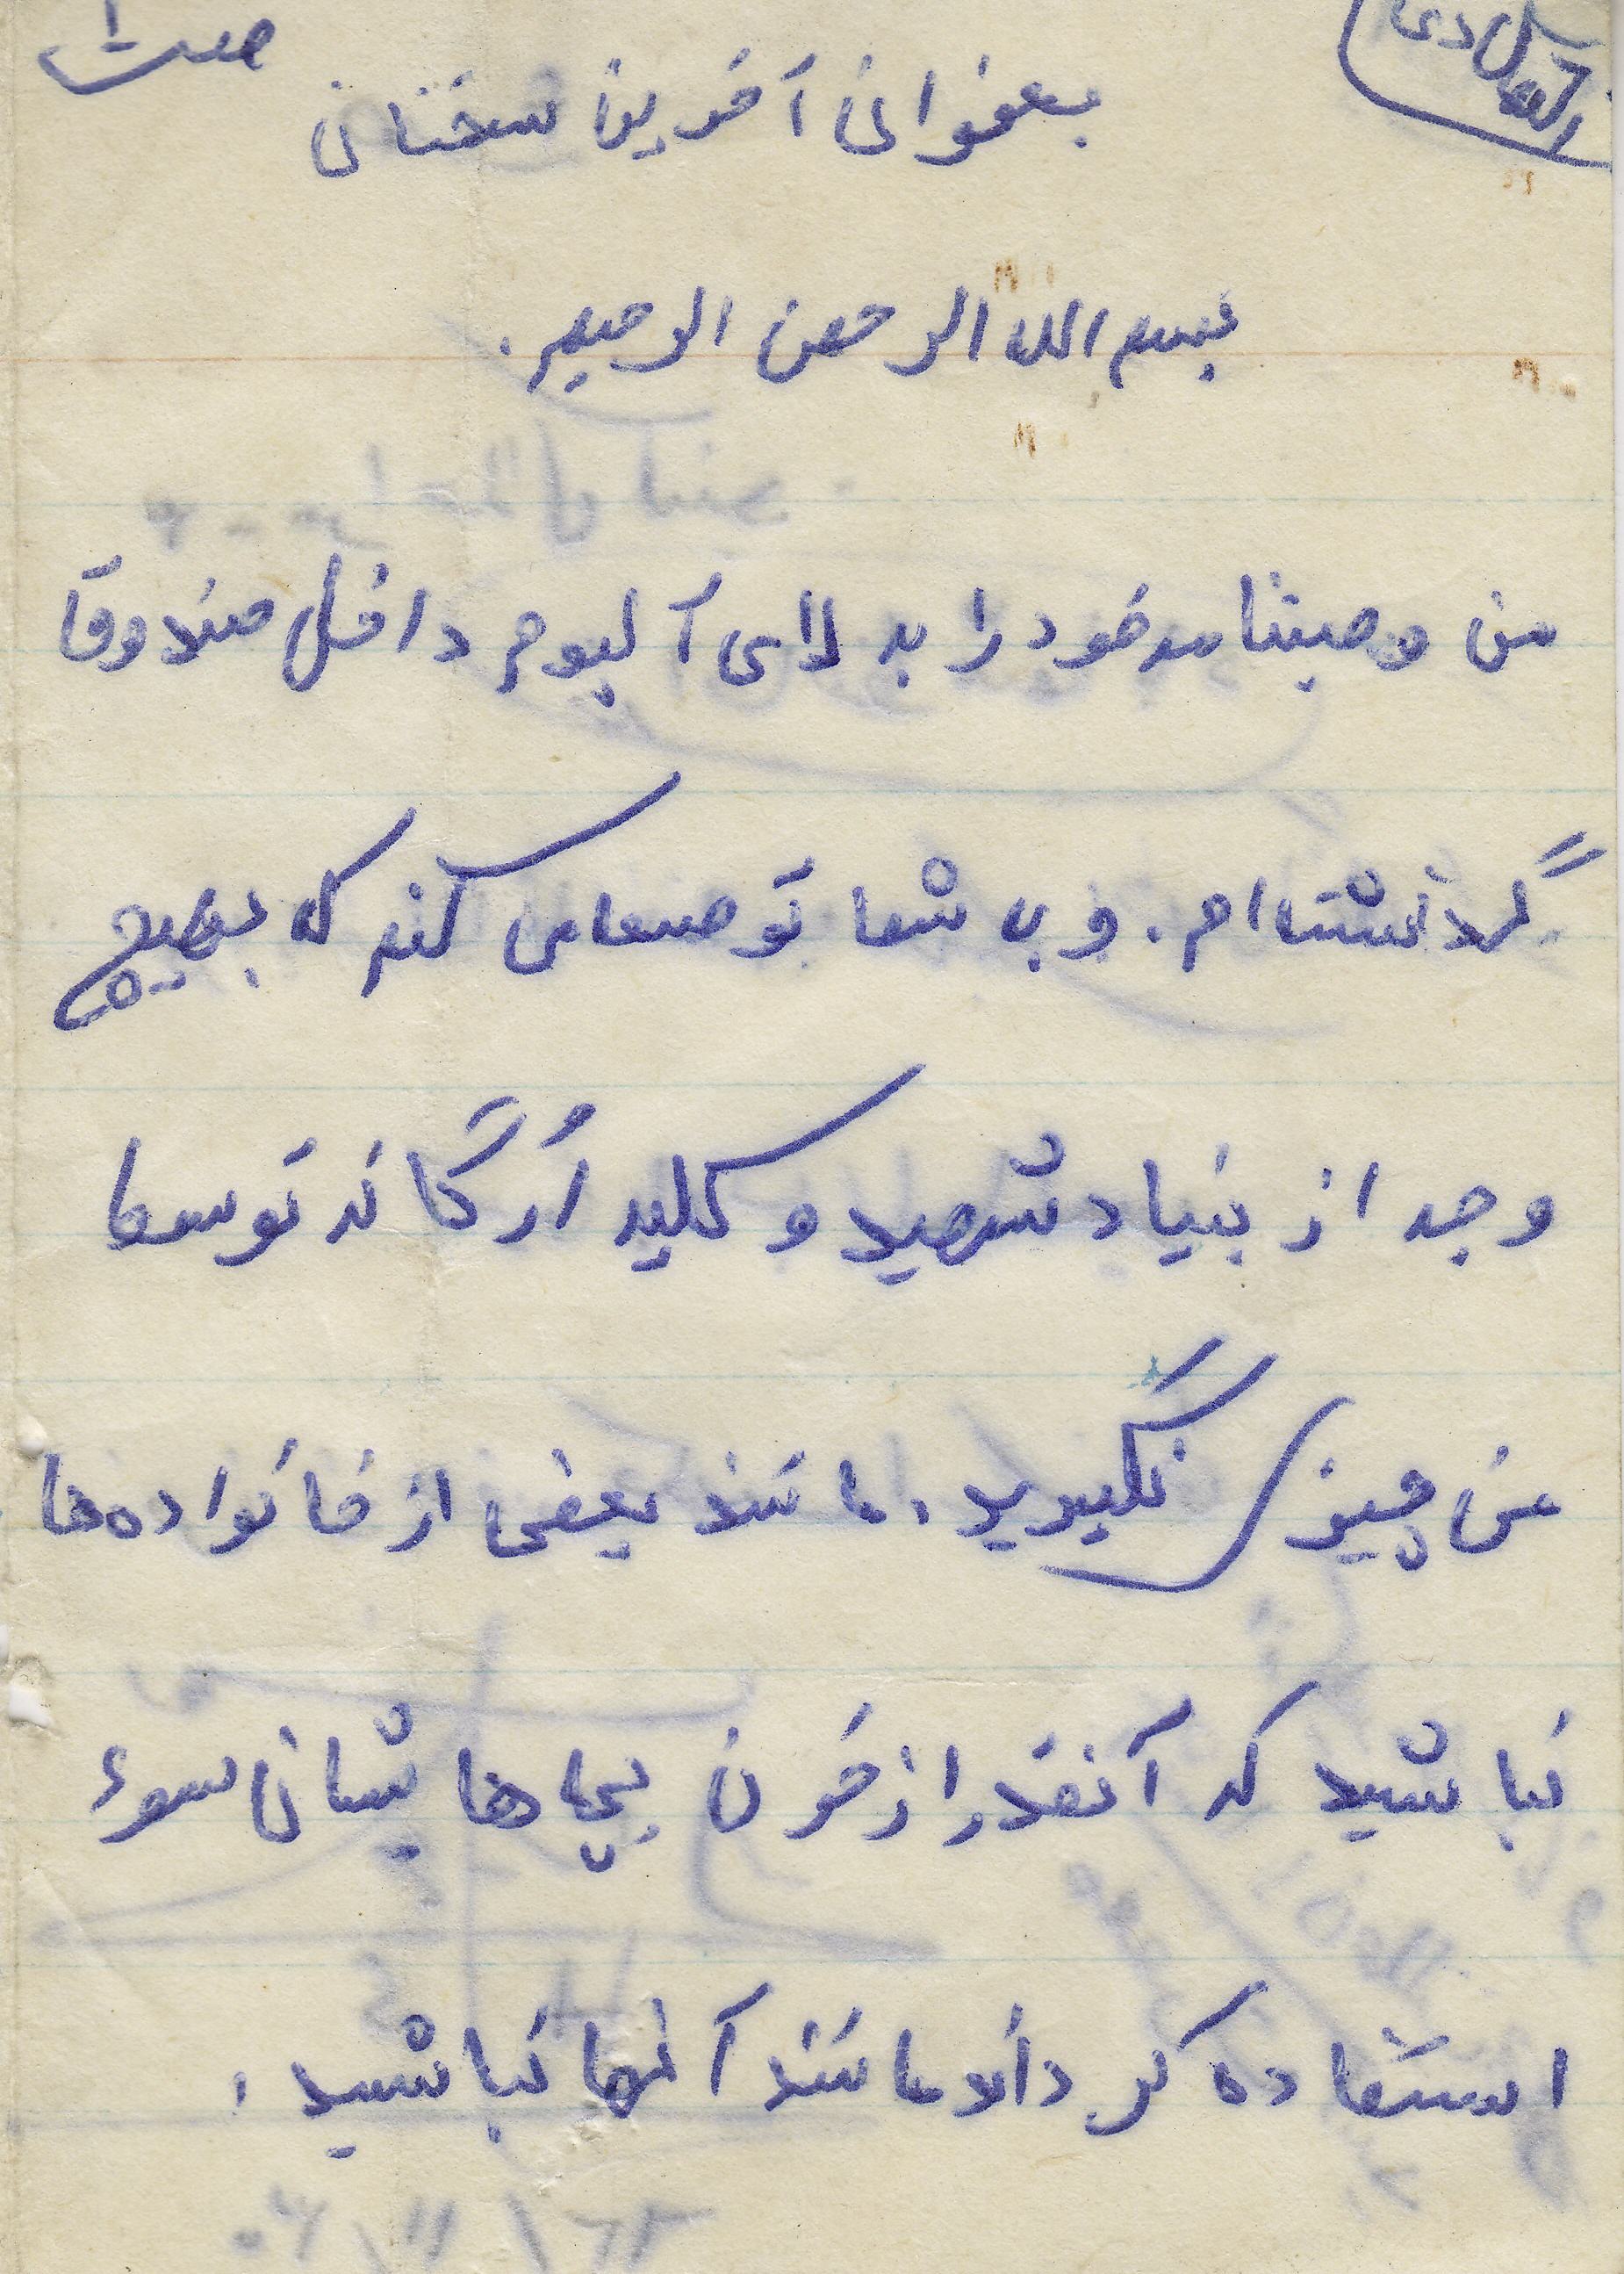 بعنوان آخرین سخنان
بسم الله الرحمن الرحیم.
من وصیتنامه خود را به لای آلبوم داخل صندوق
گذاشته ام. و به شما توصیه می کنم که بهیچ
وجه از بنیاد شهید و کلیه اُرگانه توسط
من چیزی نگیرید. مانند بعضی از خانواده ها
نباشید که آنقدر از خون بچه هایشان سوء
استفاده کرده اند مانند آنها نباشید.